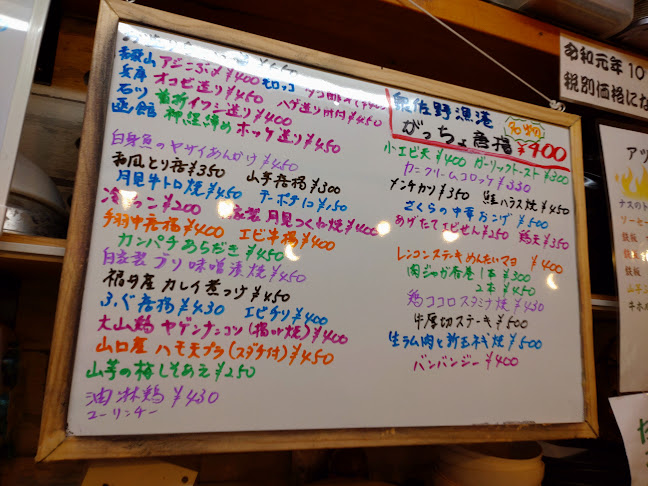 和歌山 アジこぶ〆 ¥400
兵庫 オコゼ造り ¥450 ハゲ造り肝付 ¥450
石川 イワシ造り ¥400
函館 ホッケ造り ¥450
白身魚のヤサイあんかけ ¥450
和風とり唐 ¥350 山芋唐揚 ¥300
月見牛トロ焼 ¥450 ポテト ¥150
¥200 自家製 月見つくね焼 ¥400
手羽中唐揚 ¥400 エビ串揚 ¥400
カンパチあらだき ¥450
自家製 ブリ味噌漬焼 ¥450
福井産 カレイ煮つけ ¥450
ふぐ唐揚 ¥430 エビチリ ¥400
大山鶏 ヤゲンナンコツ(揚or焼) ¥400
山口産 ハモ天プラ(スダチ付) ¥450
山芋の梅しそあえ ¥250
油淋鶏 ¥430
ユーリンチー
泉佐野漁港
がっちょ唐揚 ¥400
小エビ天 ¥400 ガーリックトースト ¥300
カニクリームコロッケ ¥330
メンチカツ ¥350 鮭ハラス焼 ¥450
さくらの中華おこげ ¥500
あげたてエビせん ¥250 鶏天 ¥350
レンコンステキめんたいマヨ ¥400
肉じゃが春巻 1本 ¥300
2本 ¥450
鶏ココロスタミナ焼 ¥430
牛厚切ステーキ ¥500
生ラム肉と新玉ネギ焼 ¥500
バンバンジー ¥400
令和元年10
税別価格にな
アツ
ナスのト
ソーセー
鉄板
鉄板
山芋